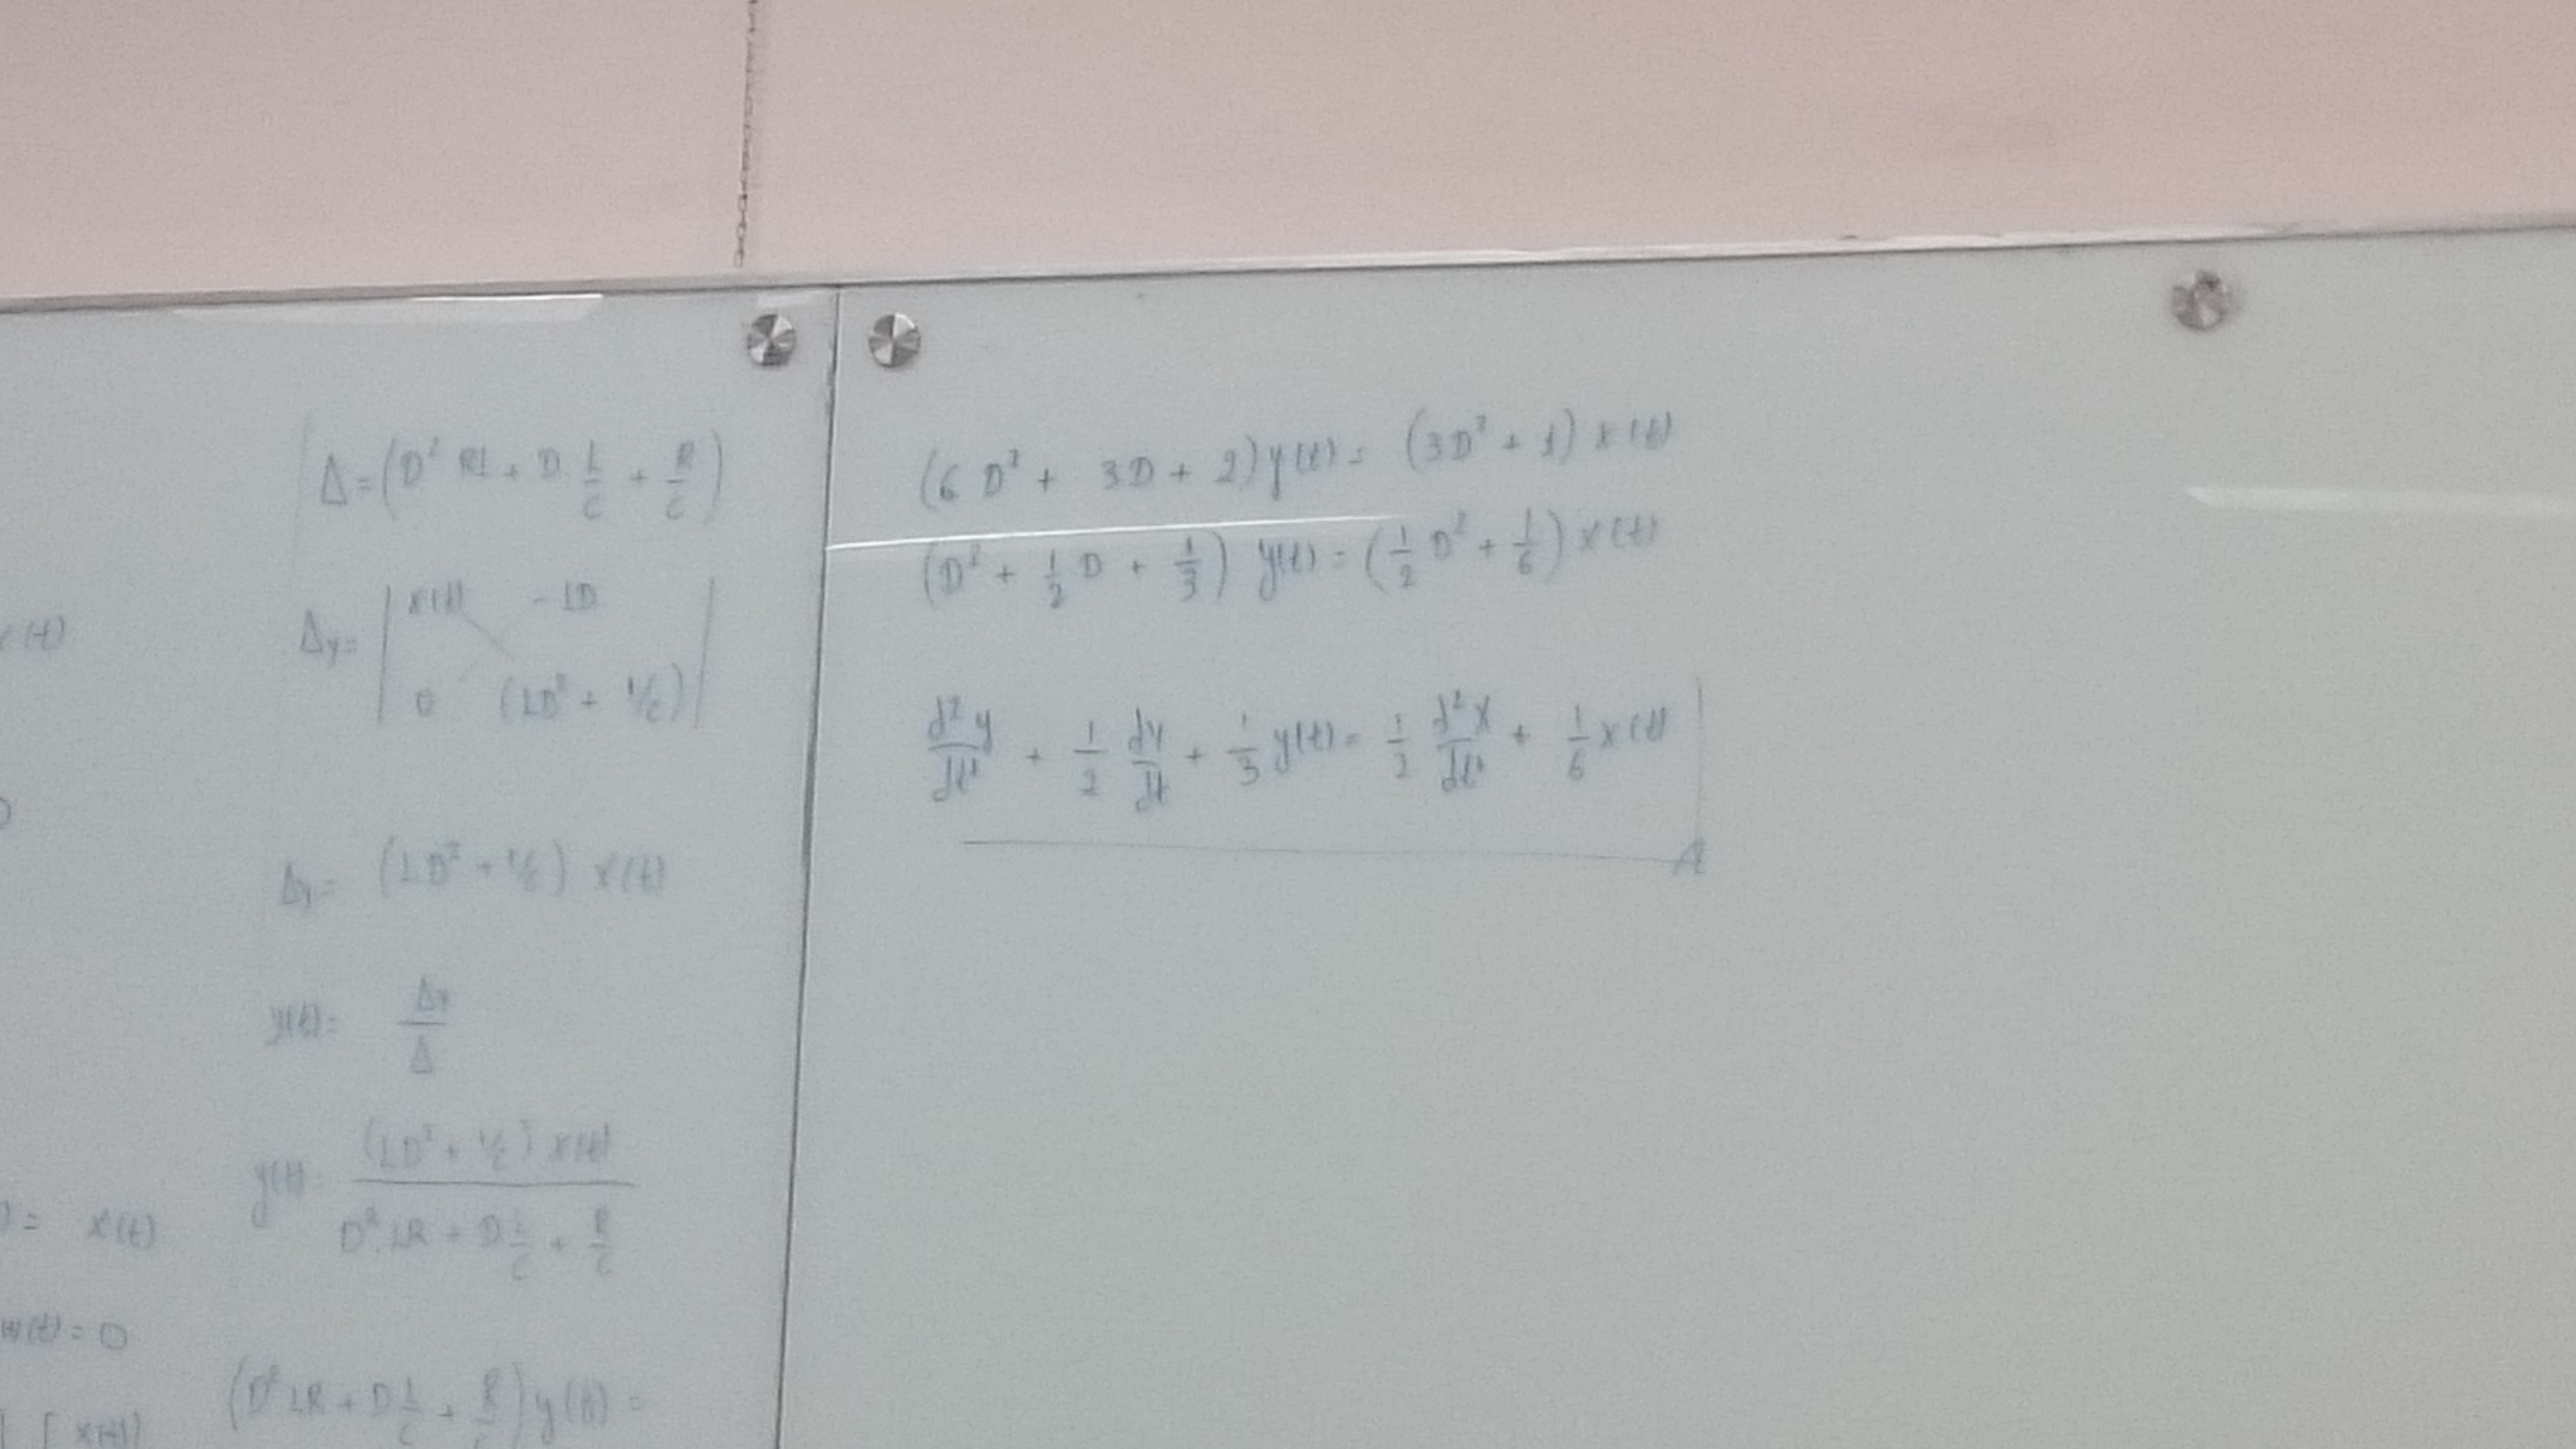 x(t)
= x(t)
w(t) = 0
[ x(t)
Δ = (D² RL + D L/C + R/C)
Δy = | x(t) - LD
0 (LD² + 1/C) |
Δy = (LD² + 1/C) x(t)
y(t) = Δy/Δ
y(t) = (LD² + 1/C) x(t) / D² LR + D L/C + R/C
(D² LR + D L/C + R/C) y(t) =
(6 D² + 3D + 2) y(t) = (3D² + 1) x(t)
(D² + 1/2 D + 1/3) y(t) = (1/2 D² + 1/6) x(t)
d²y/dt² + 1/2 dy/dt + 1/3 y(t) = 1/2 d²x/dt² + 1/6 x(t)